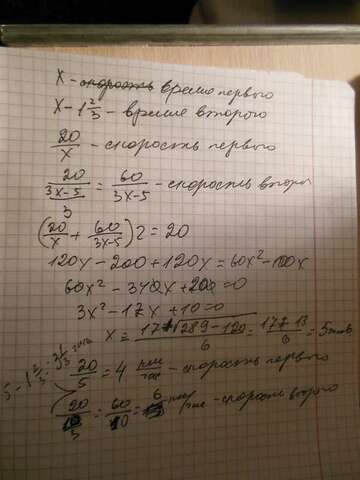 x - скорость время первого
x - 1 2/3 - время второго
20/x - скорость первого
20/((3x-5)/3) = 60/(3x-5) - скорость второ
(20/x + 60/(3x-5)) 2 = 20
120x - 200 + 120x = 60x² - 100x
60x² - 340x + 200 = 0
3x² - 17x + 10 = 0
x = (17 + √(289 - 120))/6 = (17 + 13)/6 = 5
20/5 = 4 км/час - скорость первого
5 - 1 2/3 = 3 1/3
20/(10/3) = 60/10 = 6 км/час - скорость второго